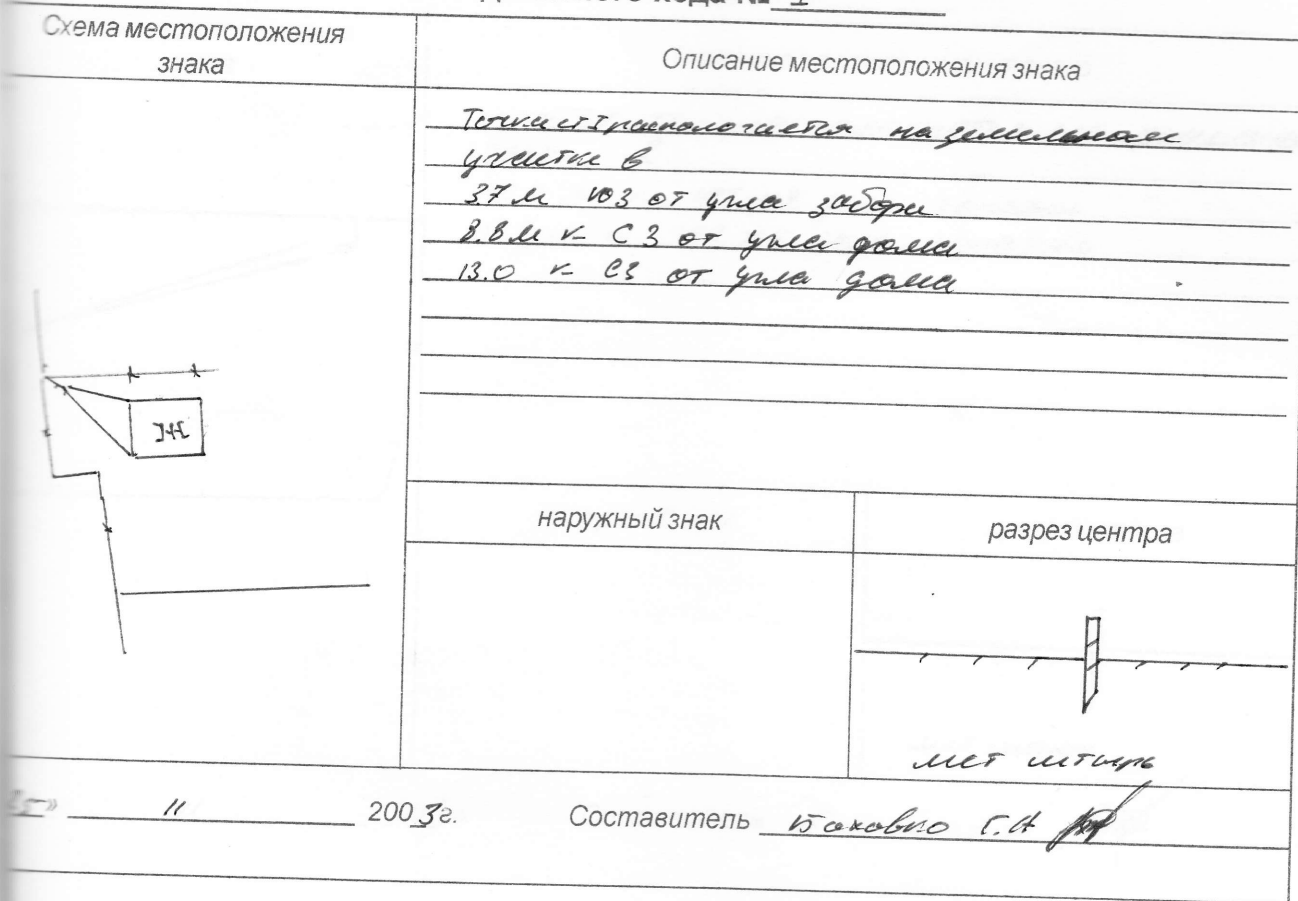 хода № 1
Схема местоположения
знака
Описание местоположения знака
Точка ст I распологается на земельном
участке в
3.7 м ЮЗ от угла забора
8.8 м к СЗ от угла дома
13.0 к СЗ от угла дома
Ж
наружный знак
разрез центра
мет штырь
25» 11 2003г.
Составитель Г.А